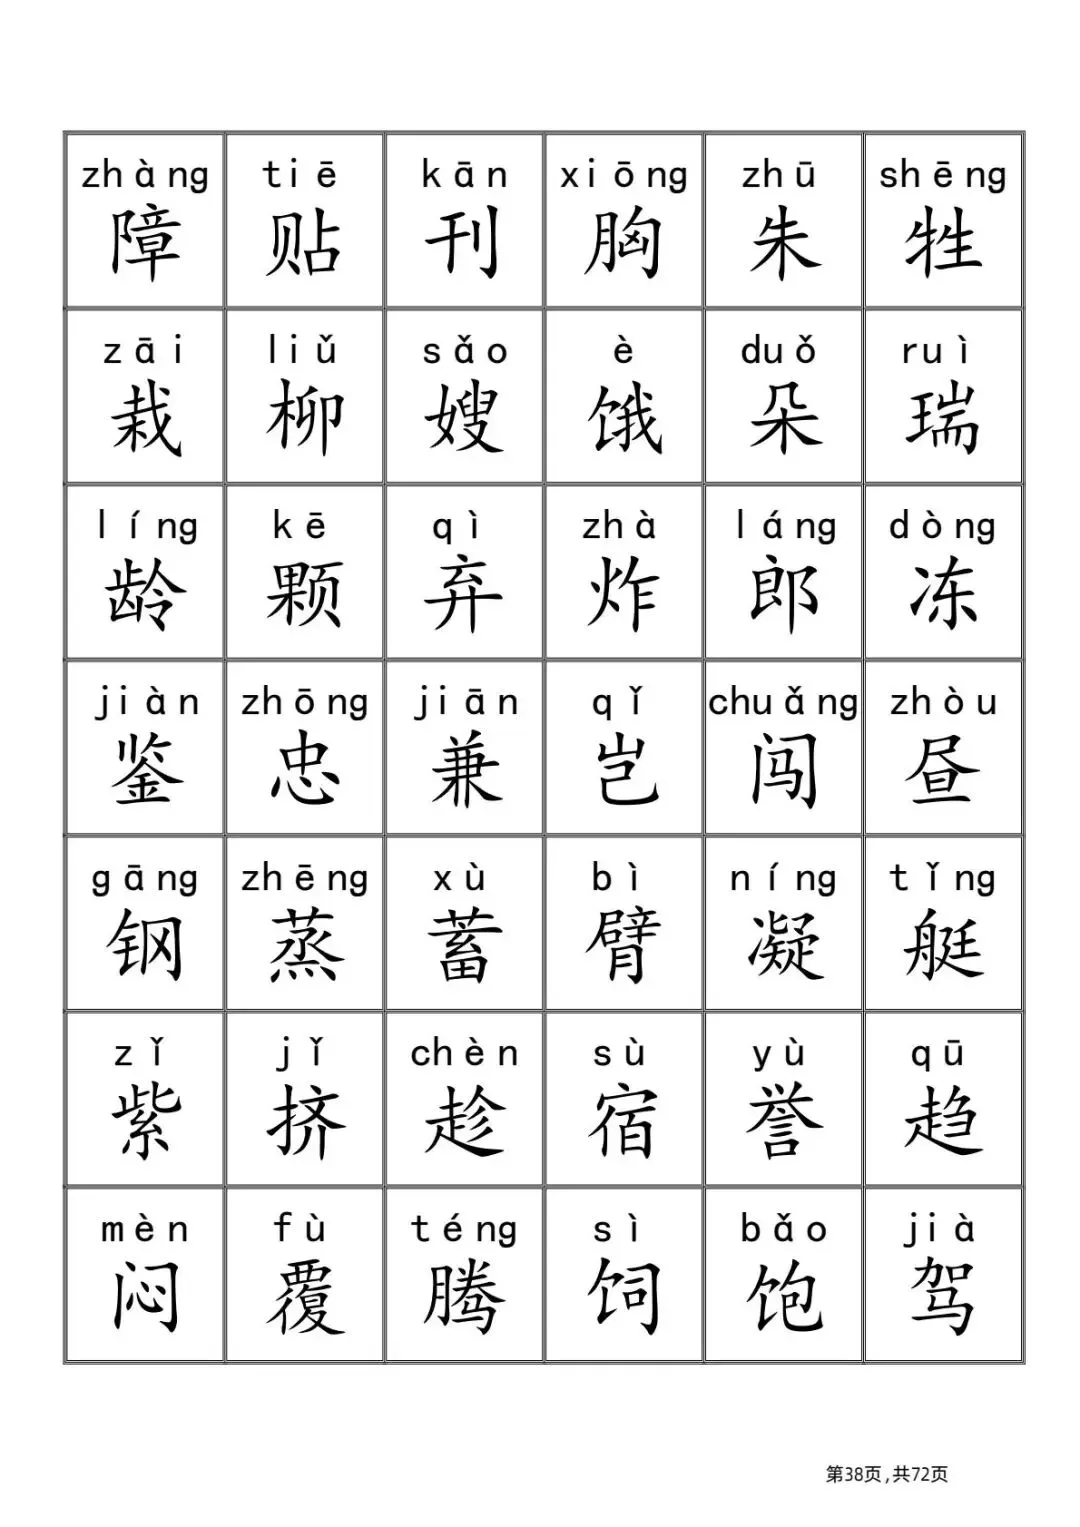 zhàng tiē kān xiōng zhū shēng
障 贴 刊 胸 朱 牲
zāi liǔ sǎo è duǒ ruì
栽 柳 嫂 饿 朵 瑞
líng kē qì zhà láng dòng
龄 颗 弃 炸 郎 冻
jiàn zhōng jiān qǐ chuǎng zhòu
鉴 忠 兼 岂 闯 昼
gāng zhēng xù bì níng tǐng
钢 蒸 蓄 臂 凝 艇
zǐ jǐ chèn sù yù qū
紫 挤 趁 宿 誉 趋
mèn fù téng sì bǎo jià
闷 覆 腾 饲 饱 驾
第38页,共72页